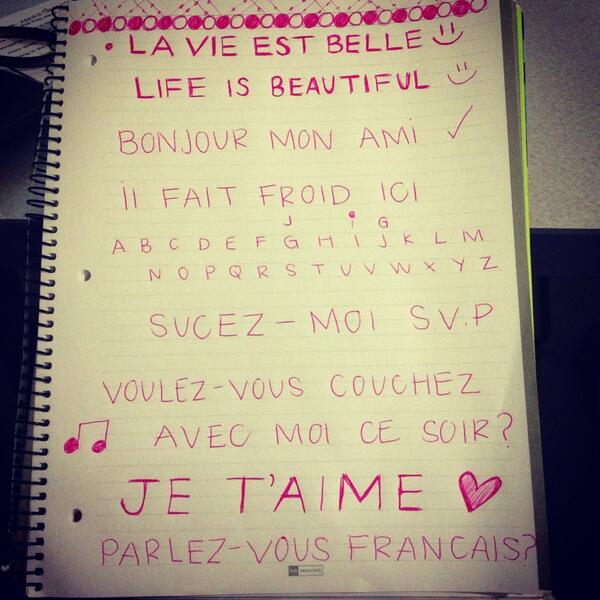 LA VIE EST BELLE
LIFE IS BEAUTIFUL
BONJOUR MON AMI ✓
Il FAIT FROID ICI
J i G
A B C D E F G H I J K L M
N O P Q R S T U V W X Y Z
SUCEZ-MOI S.V.P
VOULEZ-VOUS COUCHEZ
AVEC MOI CE SOIR?
JE T'AIME
PARLEZ-VOUS FRANCAIS?